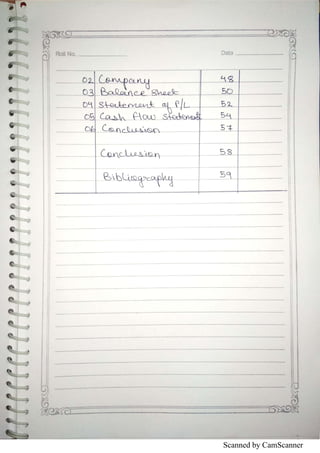 Roll No.
Date
02 Company 48
03 Balance Sheet 50
04 Statement of P/L 52
05 Cash Flow Statement 54
06 Conclusion 57
Conclusion 58
Bibliography 59
Scanned by CamScanner